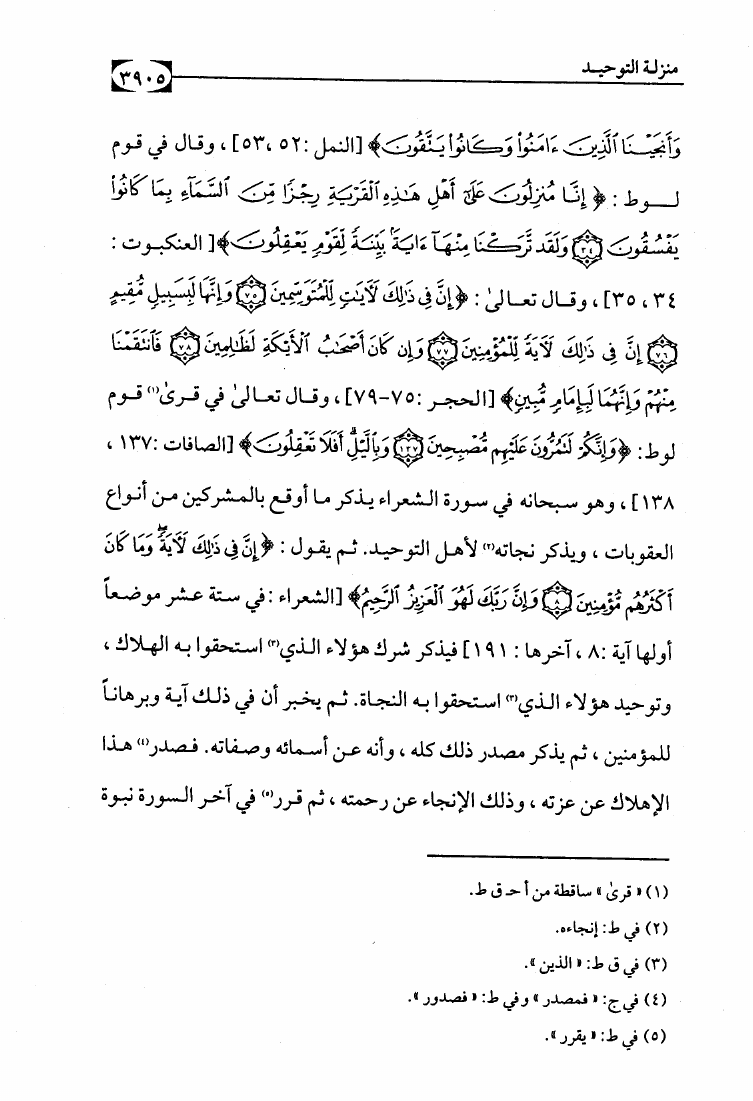 منزلة التوحيد
٣٩٠٥
وَأَنجَيْنَا ٱلَّذِينَ ءَامَنُواْ وَكَانُواْ يَتَّقُونَ﴾ [النمل :٥٢ ،٥٣] ، وقال في قوم
لـوط : ﴿ إِنَّا مُنزِلُونَ عَلَىٰٓ أَهْلِ هَٰذِهِ ٱلْقَرْيَةِ رِجْزًا مِّنَ ٱلسَّمَآءِ بِمَا كَانُواْ
يَفْسُقُونَ ۝٣٤ وَلَقَد تَّرَكْنَا مِنْهَآ ءَايَةًۢ بَيِّنَةً لِّقَوْمٍ يَعْقِلُونَ﴾ [ العنكبوت :
٣٤ ، ٣٥] ، وقال تعالىٰ : ﴿إِنَّ فِى ذَٰلِكَ لَآيَٰتٍ لِّلْمُتَوَسِّمِينَ ۝٧٥ وَإِنَّهَا لَبِسَبِيلٍ مُّقِيمٍ
۝٧٦ إِنَّ فِى ذَٰلِكَ لَآيَةً لِّلْمُؤْمِنِينَ ۝٧٧ وَإِن كَانَ أَصْحَٰبُ ٱلْأَيْكَةِ لَظَٰلِمِينَ ۝٧٨ فَٱنتَقَمْنَا
مِنْهُمْ وَإِنَّهُمَا لَبِإِمَامٍ مُّبِينٍ﴾ [الحجر :٧٥-٧٩] ، وقال تعالىٰ في قرىٰ(١) قوم
لوط: ﴿وَإِنَّكُمْ لَتَمُرُّونَ عَلَيْهِم مُّصْبِحِينَ ۝١٣٧ وَبِٱلَّيْلِۗ أَفَلَا تَعْقِلُونَ﴾ [الصافات :١٣٧ ،
١٣٨] ، وهو سبحانه في سورة الشعراء يذكر ما أوقع بالمشركين من أنواع
العقوبات ، ويذكر نجاته(٢) لأهل التوحيد. ثم يقول : ﴿إِنَّ فِى ذَٰلِكَ لَآيَةًۖ وَمَا كَانَ
أَكْثَرُهُم مُّؤْمِنِينَ ۝٨ وَإِنَّ رَبَّكَ لَهُوَ ٱلْعَزِيزُ ٱلرَّحِيمُ﴾ [الشعراء :في ستة عشر موضعاً
أولها آية :٨ ، آخرها : ١٩١] فيذكر شرك هؤلاء الذي(٣) استحقوا به الهلاك ،
وتوحيد هؤلاء الذي(٣) استحقوا به النجاة. ثم يخبر أن في ذلك آية وبرهاناً
للمؤمنين ، ثم يذكر مصدر ذلك كله ، وأنه عن أسمائه وصفاته. فصدر(٤) هذا
الإهلاك عن عزته ، وذلك الإنجاء عن رحمته ، ثم قرر(٥) في آخر السورة نبوة
(١) « قرىٰ » ساقطة من أ حـ ق ط.
(٢) في ط: إنجاءه.
(٣) في ق ط: « الذين ».
(٤) في ج: « فمصدر » وفي ط: « فصدور ».
(٥) في ط: « يقرر ».